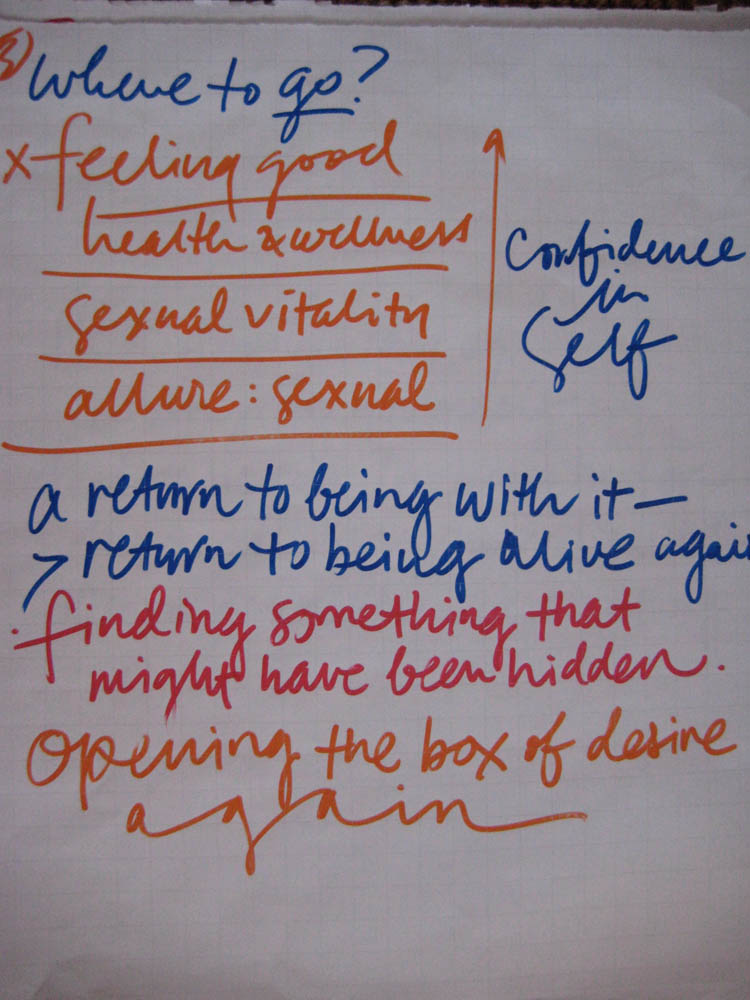 3) Where to go?
x feeling good
health & wellness
sexual vitality
allure: sexual
Confidence
in
Self
a return to being with it —
> return to being alive again
. finding something that
might have been hidden.
Opening the box of desire
again